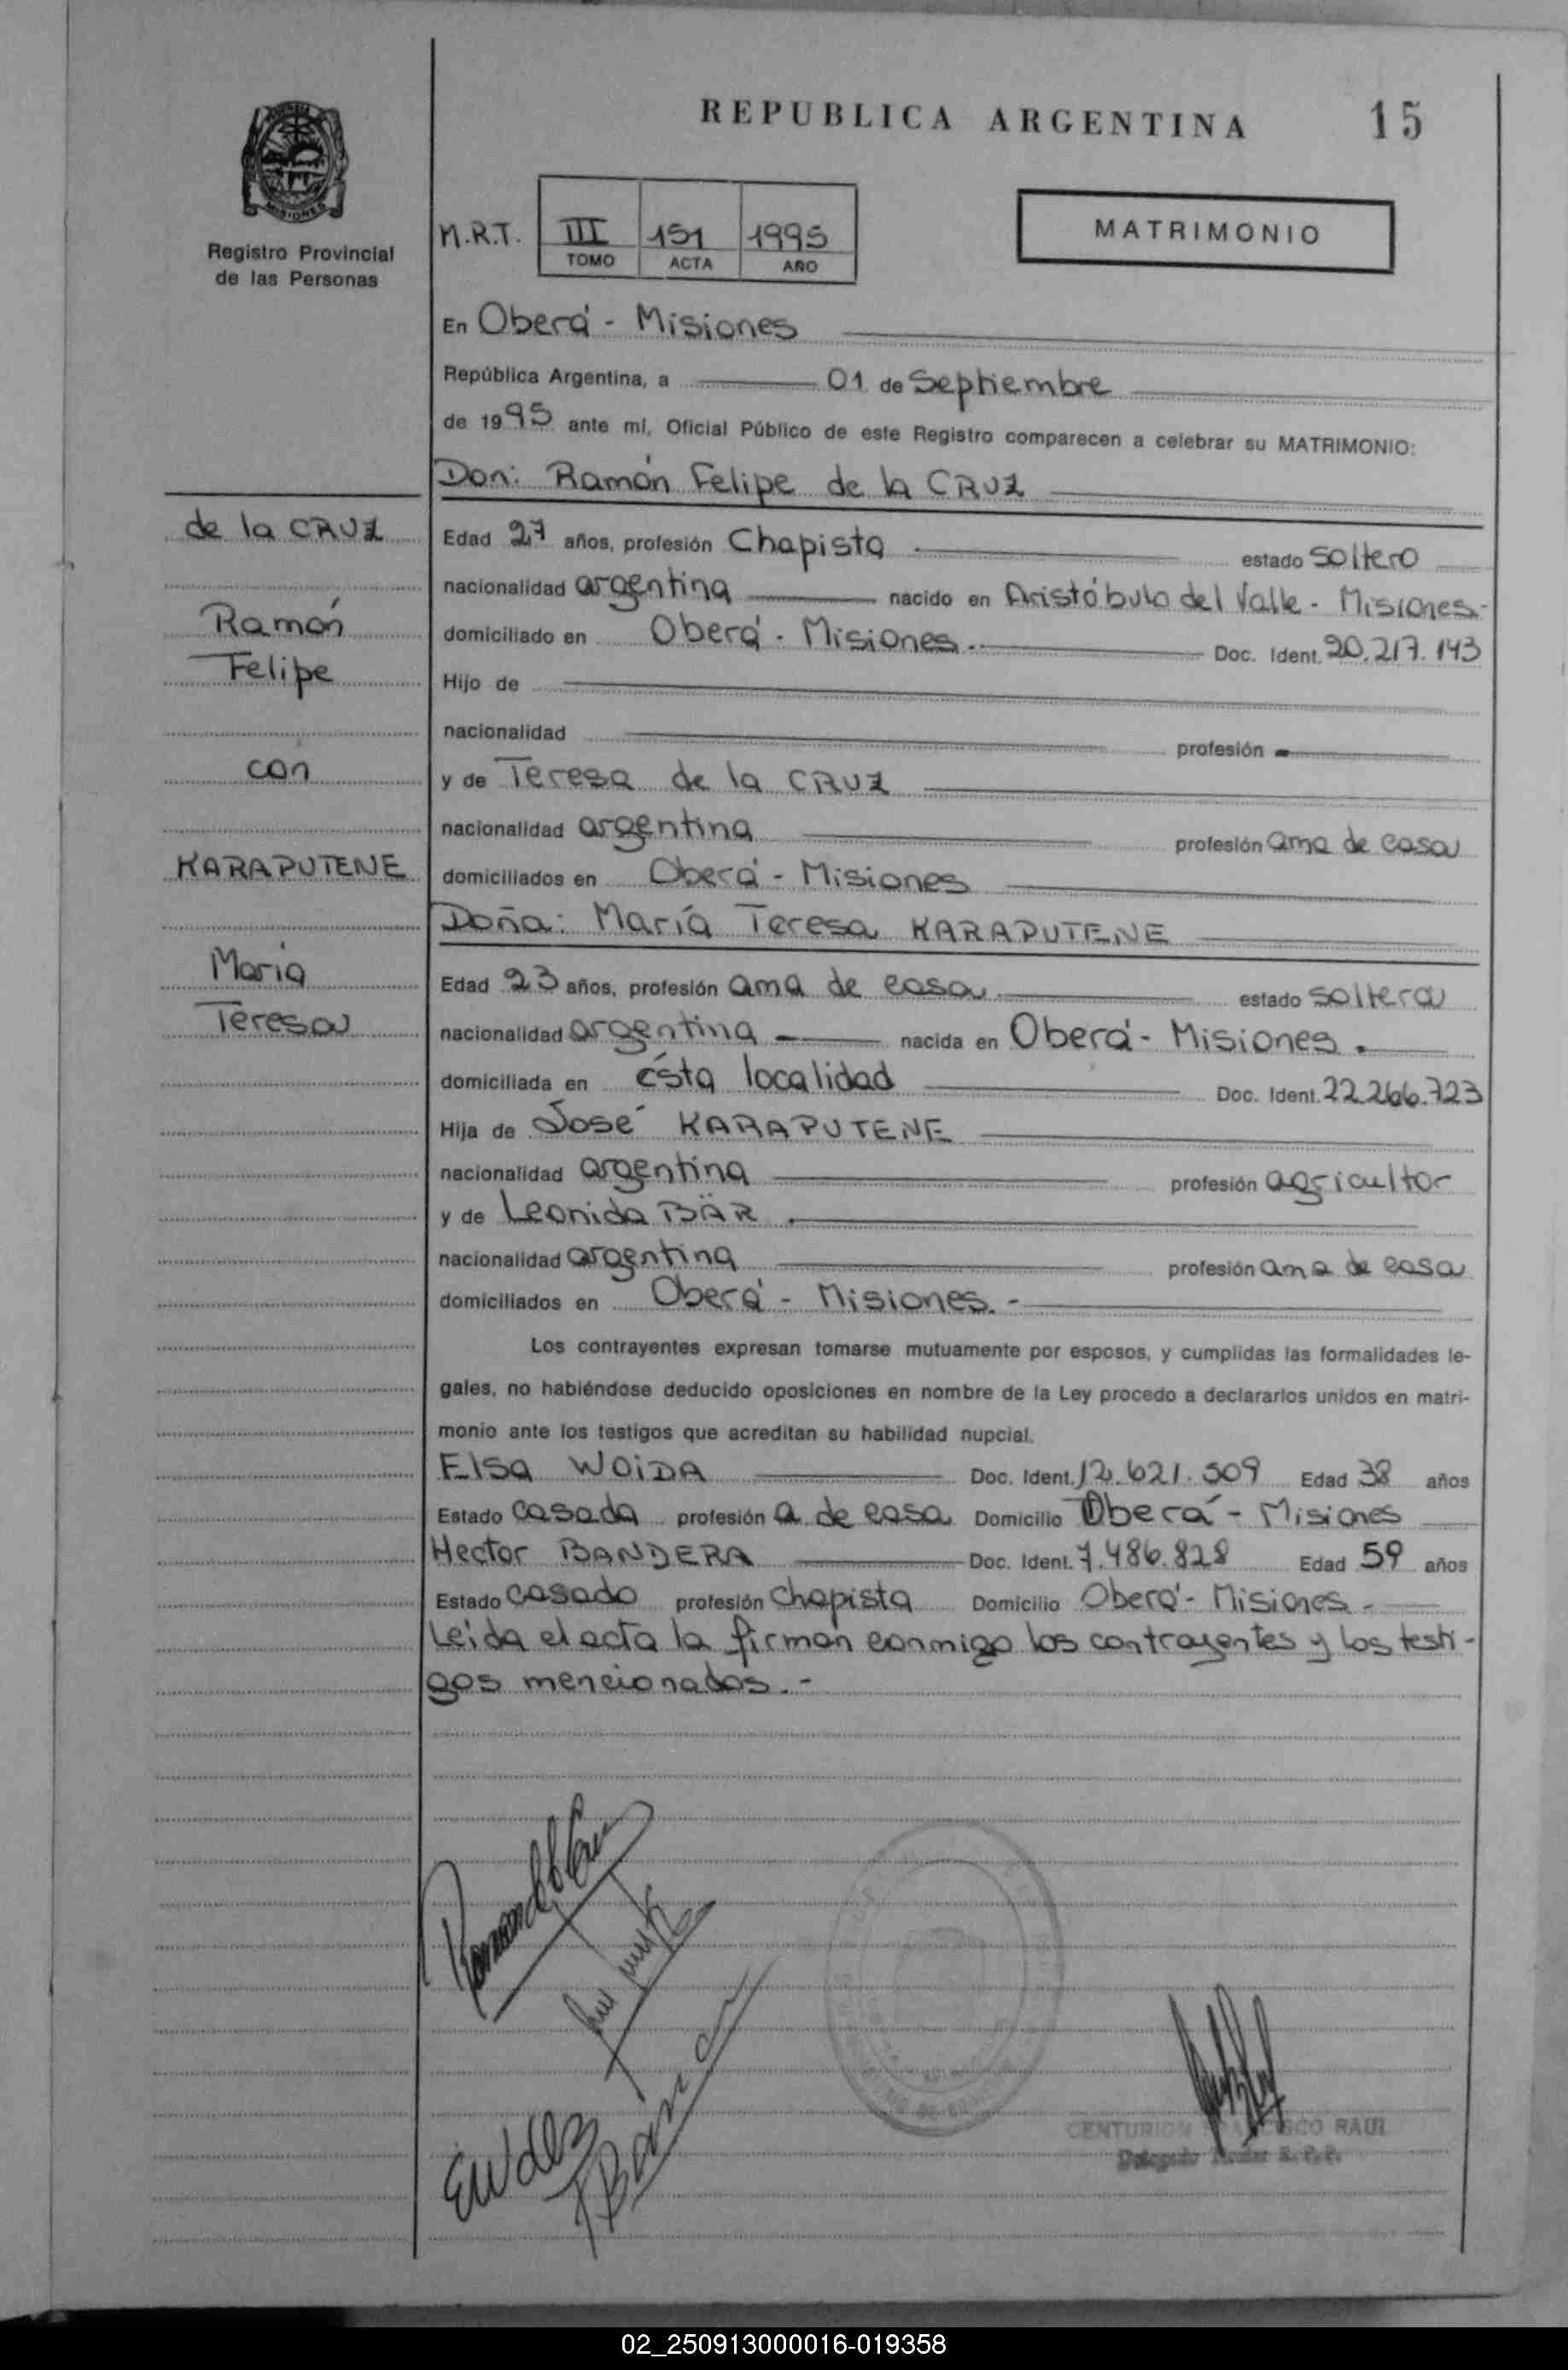 REPUBLICA ARGENTINA 15
MISIONES
Registro Provincial
de las Personas
M.R.T. III 151 1995
TOMO ACTA AÑO
MATRIMONIO
En Oberá - Misiones
República Argentina, a 01 de Septiembre
de 1995 ante mí, Oficial Público de este Registro comparecen a celebrar su MATRIMONIO:
Don: Ramón Felipe de la CRUZ
de la CRUZ
Ramón
Felipe
con
KARAPUTENE
María
Teresa
Edad 27 años, profesión Chapista estado soltero
nacionalidad argentina nacido en Aristóbulo del Valle - Misiones-
domiciliado en Oberá - Misiones.- Doc. Ident. 20.217.143
Hijo de
nacionalidad profesión
y de Teresa de la CRUZ
nacionalidad argentina profesión ama de casa
domiciliados en Oberá - Misiones
Doña: María Teresa KARAPUTENE
Edad 23 años, profesión ama de casa estado soltera
nacionalidad argentina nacida en Oberá - Misiones.
domiciliada en ésta localidad Doc. Ident. 22.266.723
Hija de José KARAPUTENE
nacionalidad argentina profesión agricultor
y de Leonida BÄR
nacionalidad argentina profesión ama de casa
domiciliados en Oberá - Misiones.-
Los contrayentes expresan tomarse mutuamente por esposos, y cumplidas las formalidades le-
gales, no habiéndose deducido oposiciones en nombre de la Ley procedo a declararlos unidos en matri-
monio ante los testigos que acreditan su habilidad nupcial.
Elsa WOIDA Doc. Ident. 12.621.509 Edad 38 años
Estado casada profesión a. de casa Domicilio Oberá - Misiones
Hector BANDERA Doc. Ident. 7.486.828 Edad 59 años
Estado casado profesión chapista Domicilio Oberá - Misiones-
Leída el acta la firman conmigo los contrayentes y los testi-
gos mencionados.-
CENTURION RAUL
02_250913000016-019358